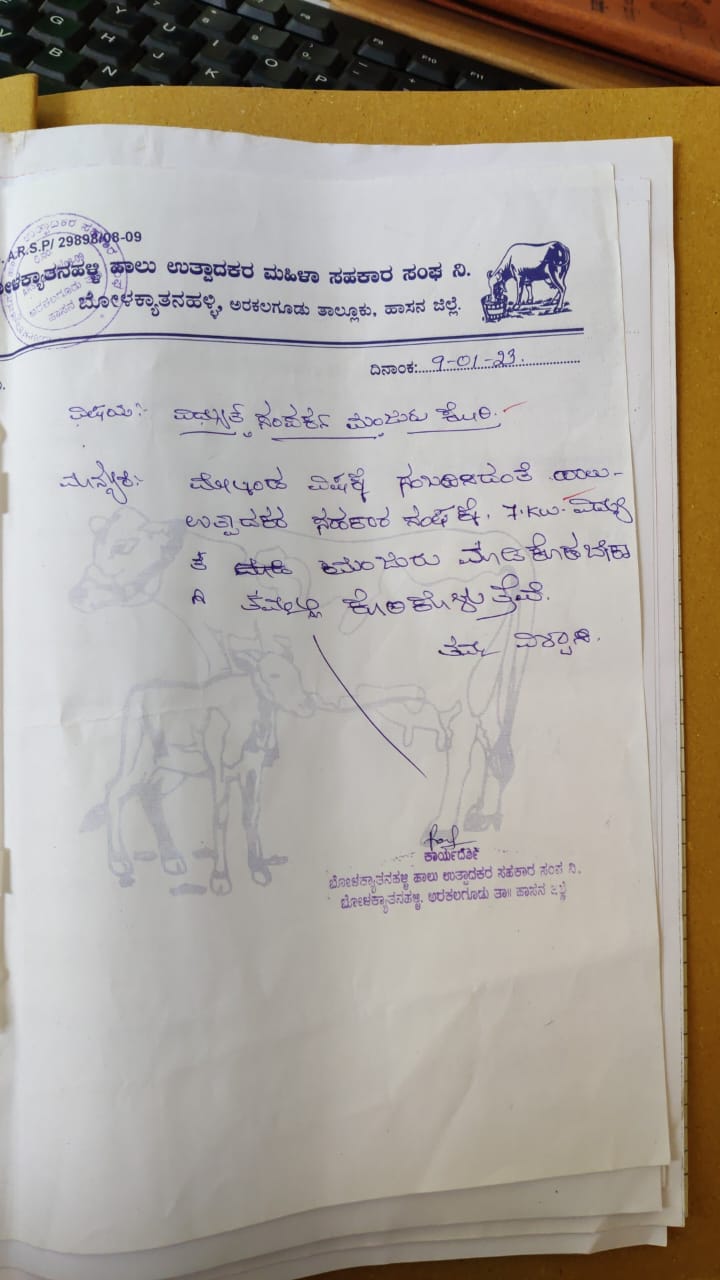 A.R.S.P/ 29898/08-09
ಬೋಳಕ್ಯಾತನಹಳ್ಳಿ ಹಾಲು ಉತ್ಪಾದಕರ ಮಹಿಳಾ ಸಹಕಾರ ಸಂಘ ನಿ.
ಬೋಳಕ್ಯಾತನಹಳ್ಳಿ, ಅರಕಲಗೂಡು ತಾಲ್ಲೂಕು, ಹಾಸನ ಜಿಲ್ಲೆ.
ದಿನಾಂಕ: 9-01-23.
ವಿಷಯ:- ವಿದ್ಯುತ್ ಸಂಪರ್ಕ ಮಂಜುರು ಕೋರಿ.
ಮೇಲ್ಕಂಡ ವಿಷಕ್ಕೆ ಹಾಲು-
ಉತ್ಪಾದಕರ ಸಹಕಾರ ಸಂಘಕ್ಕೆ. 7.KW. ವಿದ್ಯು
ತ ಮಂಜುರು ಮಾಡಿಕೊಡಬೇಕಾ
ಗಿ ಕೋರಿಕೊಳ್ಳುತ್ತೇವೆ.
ತಮ್ಮ ವಿಶ್ವಾಸಿ.
ಕಾರ್ಯದರ್ಶಿ
ಬೋಳಕ್ಯಾತನಹಳ್ಳಿ ಹಾಲು ಉತ್ಪಾದಕರ ಸಹಕಾರ ಸಂಘ ನಿ.
ಬೋಳಕ್ಯಾತನಹಳ್ಳಿ, ಅರಕಲಗೂಡು ತಾ॥ ಹಾಸನ ಜಿಲ್ಲೆ